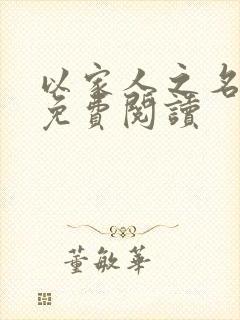 以家人之名
免費閱讀
董敏華